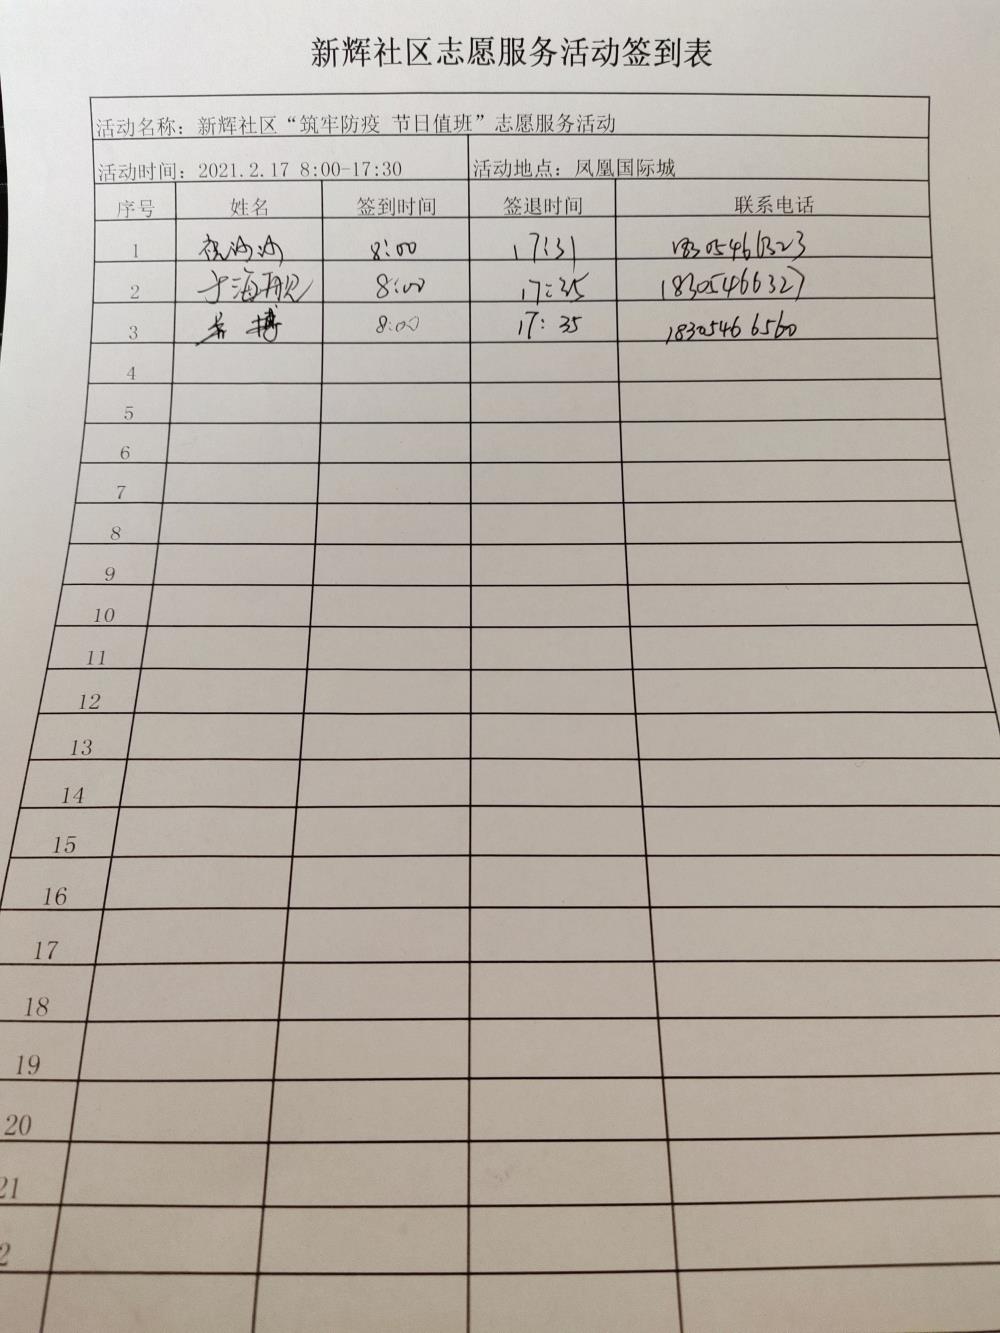 新辉社区志愿服务活动签到表
活动名称：新辉社区“筑牢防疫 节日值班”志愿服务活动
活动时间：2021.2.17 8:00-17:30 活动地点：凤凰国际城
序号 姓名 签到时间 签退时间 联系电话
1 8:00 17:31
2 8:00 17:35 18305466327
3 8:00 17:35 18305466560
4
5
6
7
8
9
10
11
12
13
14
15
16
17
18
19
20
21
2